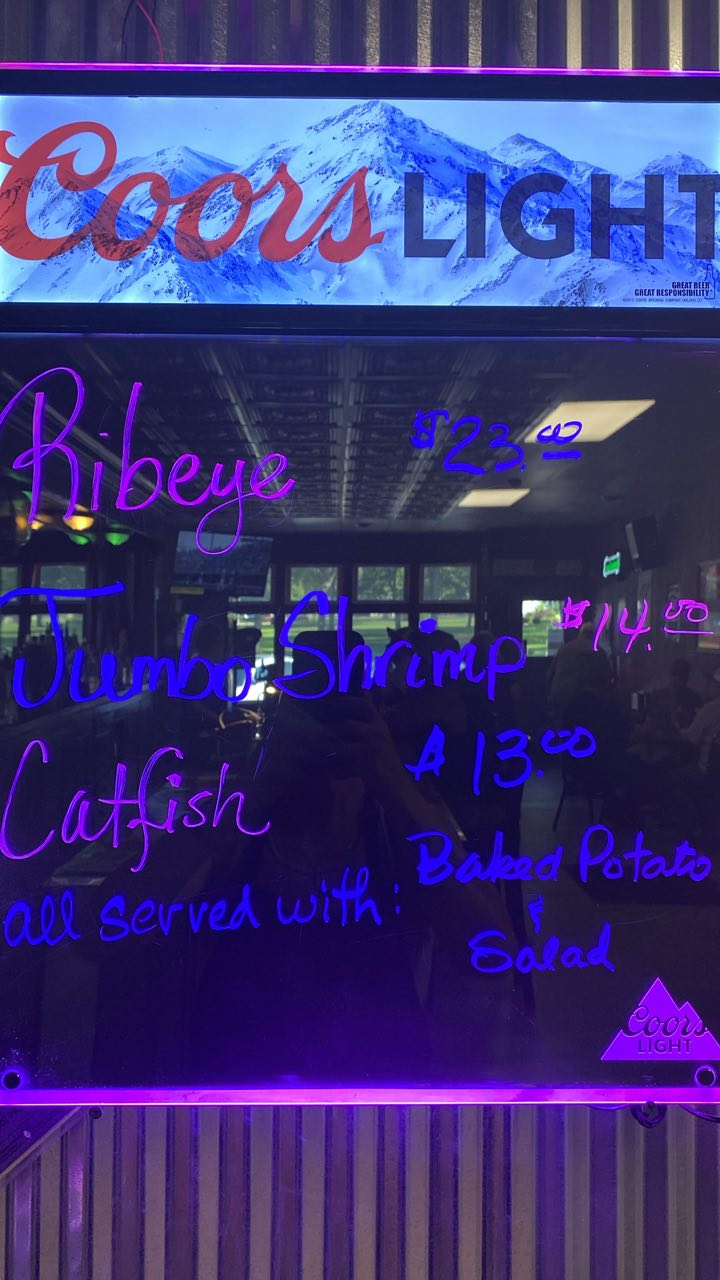 Coors LIGHT
GREAT BEER
GREAT RESPONSIBILITY
Ribeye $23.00
Jumbo Shrimp $14.00
Catfish $13.00
all served with: Baked Potato
&
Salad
Coors
LIGHT